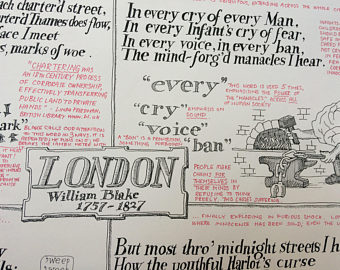 each charter'd street,
charter'd Thames does flow,
face I meet
s, marks of woe.
In every cry of every Man,
In every Infant's cry of fear,
In every voice, in every ban,
The mind-forg'd manacles I hear.
"CHARTERING WAS
AN 18TH CENTURY PROCESS
OF CORPORATE OWNERSHIP,
EFFECTIVELY TRANSFERRING
PUBLIC LAND TO PRIVATE
HANDS" - LINDA FREEDMAN,
"every"
THIS WORD IS USED 5 TIMES,
EMPHASISING THE POWER OF
THE "MANACLES" ACROSS ALL
OF HUMAN SOCIETY
"cry"
EMPHASIS ON
SOUND
"voice"
"ban"
A "BAN" IS A
SOMETHING FORBIDDEN
ark"
BLAKE CALLS OUR ATTENTION
PEOPLE MAKE
CHAINS FOR
THEMSELVES IN
THEIR MINDS BY
REFUSING TO THINK
FREELY. THIS CAUSES SUFFERING
LONDON
William Blake
1757-1827
... FINALLY EXPLODING IN FURIOUS SHOCK. LONDON
WHERE INNOCENCE HAS DIED, EVEN THE
But most thro' midnight streets I h
How the youthful Harlot's curse
y
lls:
"sweet